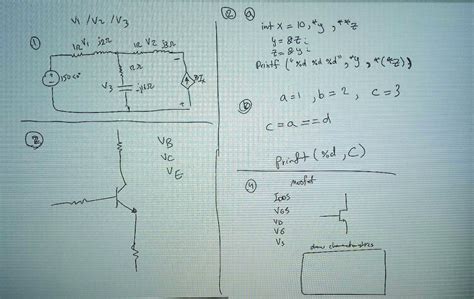 V1 / V2 / V3
①
1Ω V1 j2Ω
1Ω V2 j3Ω
V3
②
VB
VC
VE
② ⓐ
int x = 10, *y, **z
y = &z;
z = &y;
Printf ("%d %d %d", *y, *(*z))
ⓑ
a=1, b=2, c=3
c = a == d
Printf (%d, C)
④ mosfet
IDSS
VGS
VD
VG
VS
draw characteristics